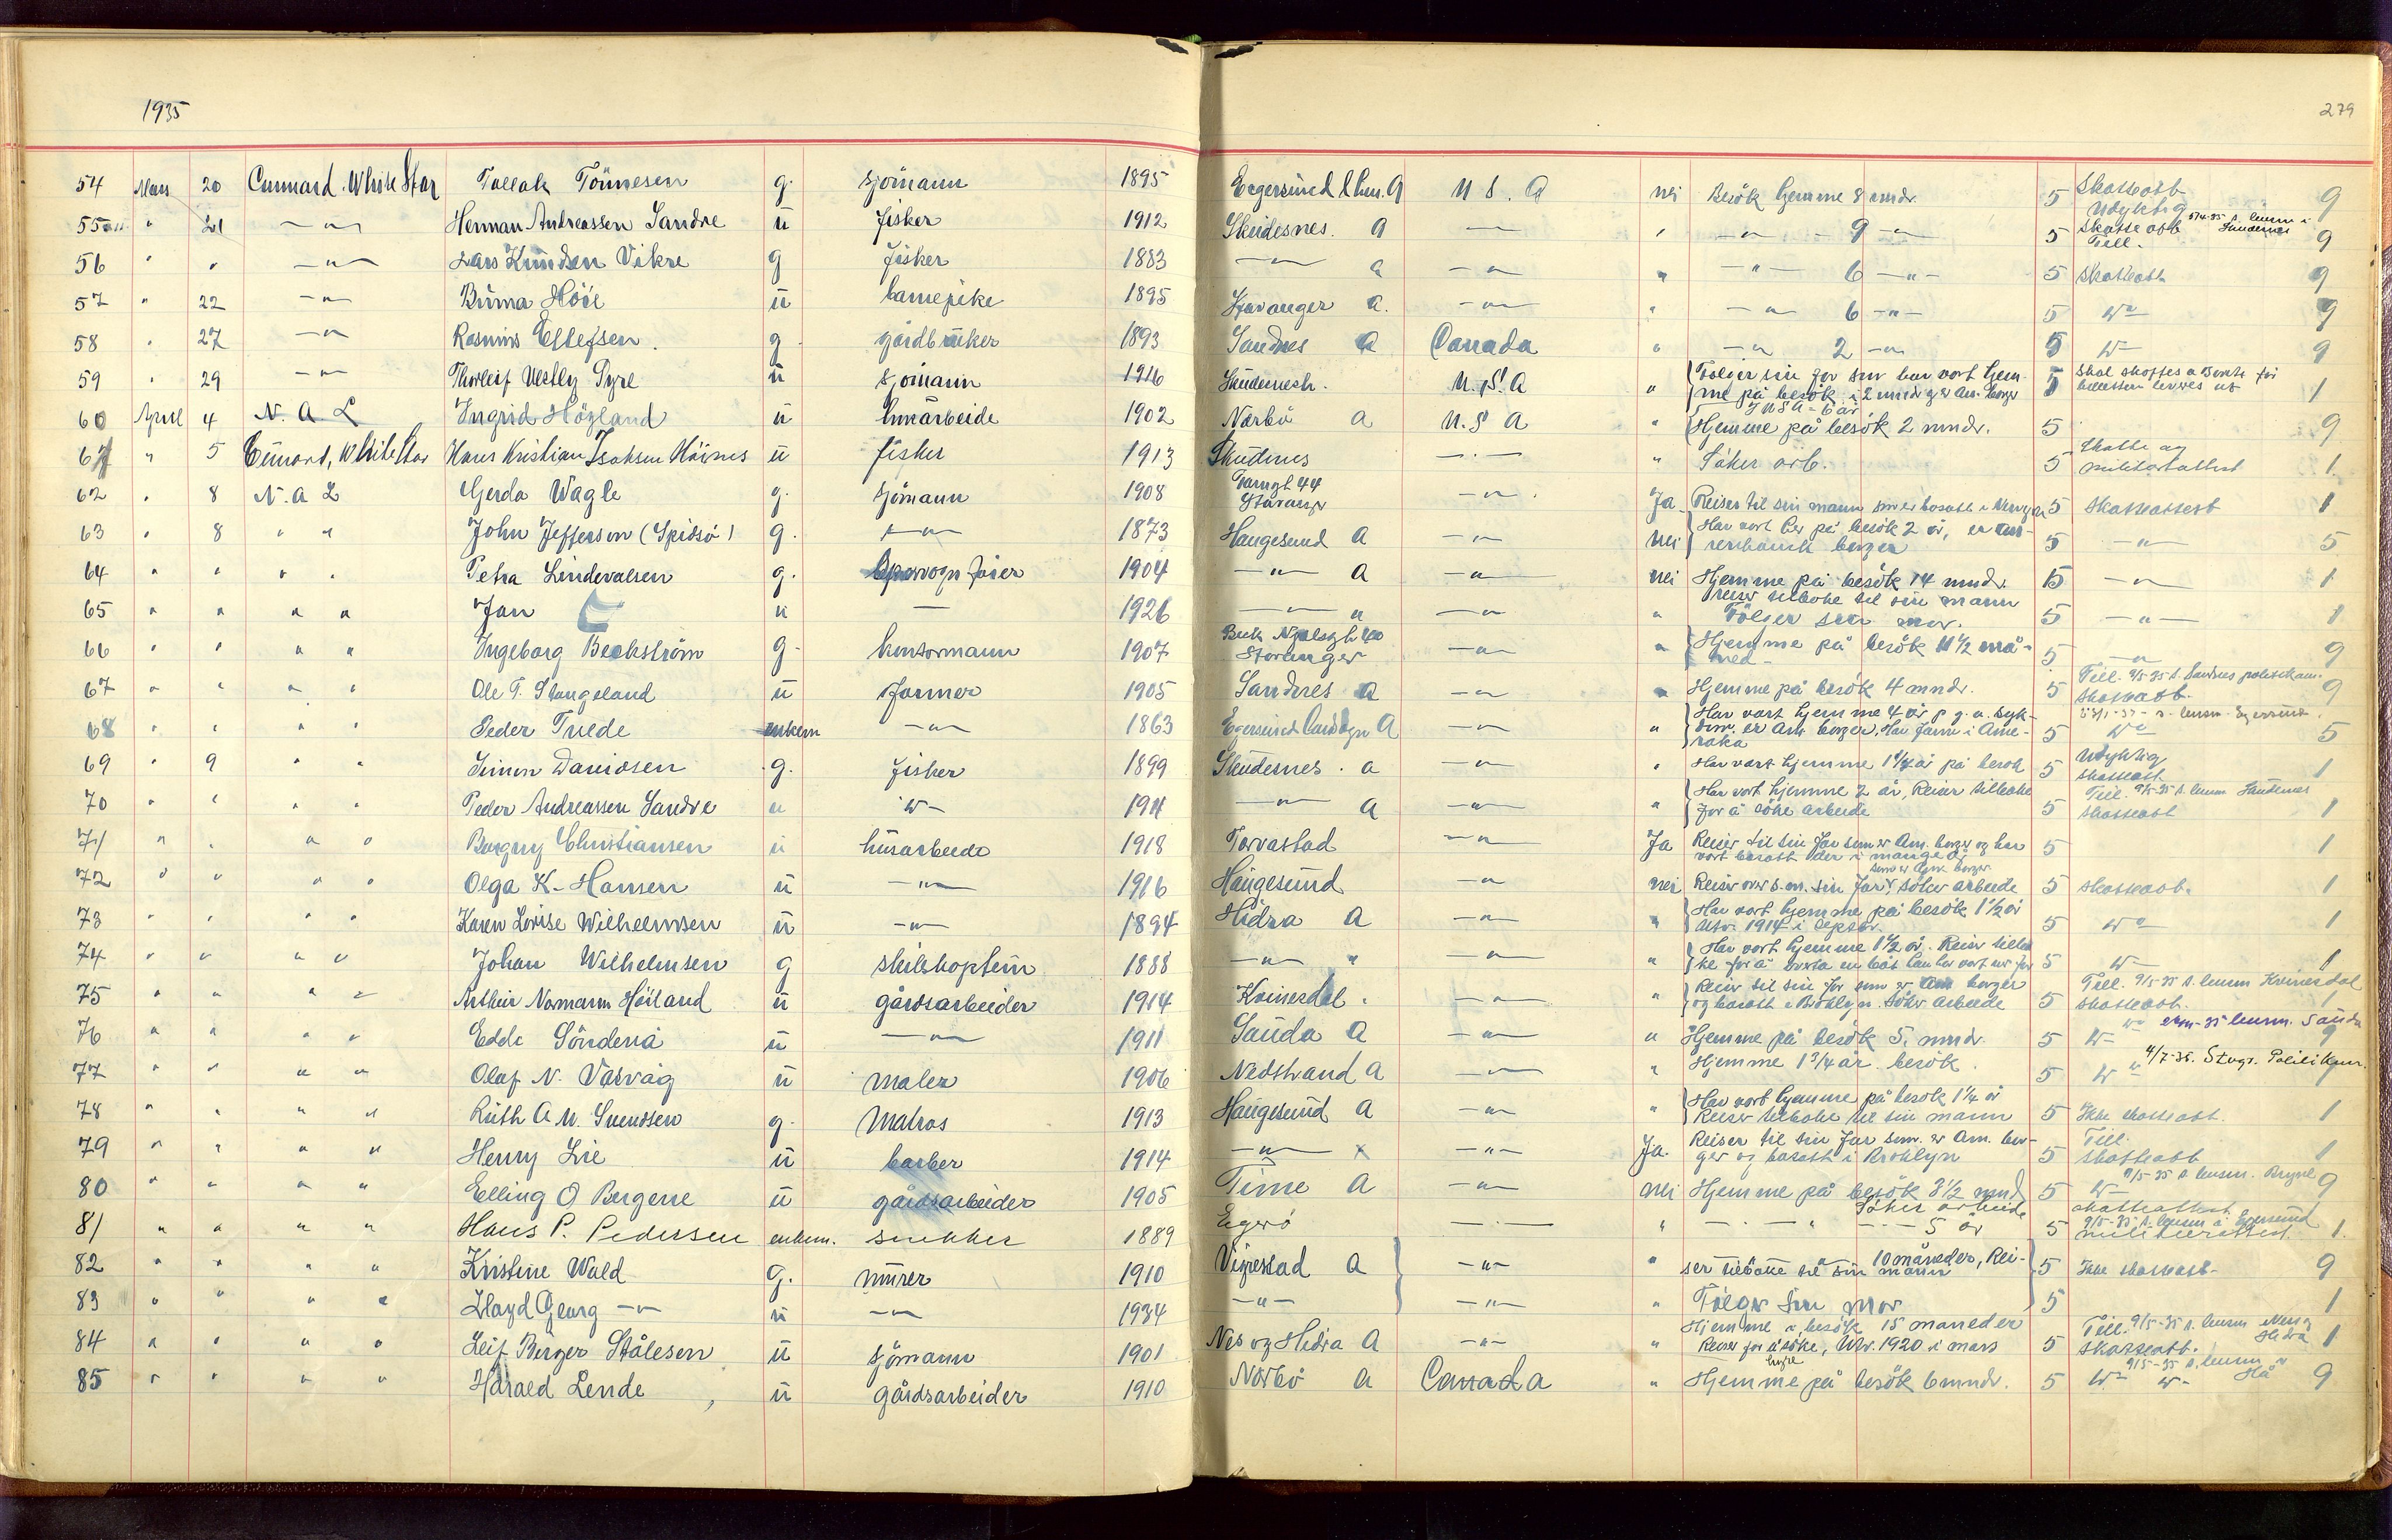 1935
279
54 Mars 20 Cunnard. White Star Tallak Tönnesen g. sjömann 1895 Egersund lhm. A U S. A nei Besök hjemme 8 mndr. 5 Skatteatt. 9
Udyktig
55 " 21 —"— Herman Andreassen Sandve u fisker 1912 Skudesnes. A —"— " —"— 9 —"— 5 Skatteatt. Till. 9
56 " " —"— Lars Knudsen Vikre g fisker 1883 —"— a —"— " —"— 6 —"— 5 Skatteatt. 9
57 " 22 —"— Bruna Hööl u barnepike 1895 Stavanger a. —"— " —"— 6 —"— 5 W— 9
58 " 27 —"— Rasmus Ellefsen. g gårdbruker 1893 Sandnes A Canada " —"— 2 —"— 5 W— 9
59 " 29 —"— Thorleif Vestly Syre u sjömann 1916 Skudenesh. U. S. A " Fölger sin far som har vært hjem-
me på besök i 2 mndr og er Am. borger 5 1
I USA - 6 år
60 April 4 N. A. L Ingrid Högland u husarbeide 1902 Nærbö a U. S A " Hjemme på besök 2 mndr. 5 9
61 " 5 Cunard, White Star Hans Kristian Isaksen Höines u fisker 1913 Skudenes —"— " Söker arb. 5 Skatte og
militærattest 1
62 " 8 N. A L Gerda Wagle g. sjömann 1908 Stavangr —"— Ja Reiser til sin mann som er bosatt i 5 Skatteattest 1
63 " 8 " " John Jefferson (Spidsö) g. —"— 1873 Haugesund A —"— nei Har vært her på besök 2 år, er am-
rerikansk borger 5 —"— 5
64 " " " " Petra Lindevalsen g. förer 1904 —"— A —"— nei Hjemme på besök 14 mndr.
reiser tilbake til sin mann 5 —"— 1
65 " " " " Jan u — 1926 —"— " —"— " Fölger sin mor. 5 —"— 1
66 " " " " Ingeborg Beckström g. kontormann 1907 Stavanger —"— " Hjemme på besök 11 1/2 må-
ned— 5 —"— 9
67 " " " " Ole T. Stangeland u farmer 1905 Sandnes A —"— " Hjemme på besök 4 mndr. 5 Till. 9/5-35 s. Sandnes politikam.
Skatteatt. 9
68 " " " " Peder Tuede enkem —"— 1863 Egersund landsogn A —"— " Har vært hjemme 4 år p. g. a. syk-
dom. er Am. borger. Har farm i Ame-
rika 5 W— 5
69 " 9 " " Simon Davidsen g. fisker 1899 Skudesnes. a —"— " Har vært hjemme 1 1/4 år på besök 5 Udyktig
skatteatt. 1
70 " " " " Peder Andreassen Sandve u W— 1911 —"— a —"— " Har vært hjemme 2 år, Reiser tilbake
for å söke arbeide 5 Till. 9/5-35 s. lensm Skudenes
skatteatt 1
71 " " " " Borgny Christiansen u husarbeide 1918 Torvastad —"— Ja Reiser til sin far som er Am. borger og har
vært bosatt der i mange år 5 1
72 " " " " Olga K. Hansen u —"— 1916 Haugesund —"— nei Reiser over s.m. sin far, söker arbeide 5 skatteatt. 1
som er Am. borger
73 " " " " Karen Lovise Wilhelmsen u —"— 1894 Hidra A —"— " Har vært hjemme på besök 1 1/2 år
Utv. 1914 i septbr. 5 W— 1
74 " " " " Johan Wilhelmsen g skibskaptein 1888 —"— " —"— " Har vært hjemme 1 1/2 år. Reiser tilba
ke for å overta en båt han har vært ner for 5 W— 1
75 " " " " Arthur Normann Höiland u gårdsarbeider 1914 Kvinesdal. —"— " Reiser til sin far som er Am borger
og bosatt i Broklyn. Söker arbeide 5 Till. 9/5-35 s. lensm Kvinesdal
skatteatt. 1
76 " " " " Edde Söndenå u —"— 1911 Sauda A —"— " Hjemme på besök 5. mndr. 5 W— lensm. Sauda 9
77 " " " " Olaf N. Vasvåg u maler 1906 Nedstrand A —"— " Hjemme 1 3/4 år besök. 5 W— 4/7-35. Stvgr. Politikam.
78 " " " " Ruth A M. Svendsen g. Matros 1913 Haugesund A —"— " Har vært hjemme på besök 1 1/4 år
Reiser tilbake til sin mann 5 Ikke skatteatt. 1
79 " " " " Henry Lie u barber 1914 —"— x —"— Ja. Reiser til sin far som. er Am. bor-
ger og bosatt i Broklyn 5 Till.
skatteatt 1
80 " " " " Elling O Bergene u gårdsarbeider 1905 Time A —"— nei Hjemme på besök 3 1/2 mnd 5 W— 9/5-35 s. lensm. Bryne 9
Söker arbeide
81 " " " " Hans P. Pedersen enkem. snekker 1889 Egerö —"— " —"— 5 år 5 skatteattest
9/5-35 s. lensm i Egersund
militærattest. 1.
82 " " " " Kristine Wald g. murer 1910 Vigrestad A —"— " —"— 10 måneder, Rei-
ser tilbake til sin mann 5 Ikke skatteatt. 9
83 " " " " Lloyd Georg —"— u —"— 1934 —"— —"— " Fölger sin mor 5 1
84 " " " " Leif Birger Stålesen u sjömann 1901 Nes og Hidra A —"— " Hjemme i besök 15 måneder
Reiser for å söke, Utv. 1920 i mars 5 Till. 9/5-35 s. lensm Nes og
Hidra
skatteatt. 1
hyre
85 " " " " Harald Lende u gårdsarbeider 1910 Nærbö a Canada " Hjemme på besök 6 mndr. 5 9/5-35 s. lensm i
Hå
W— W— 9